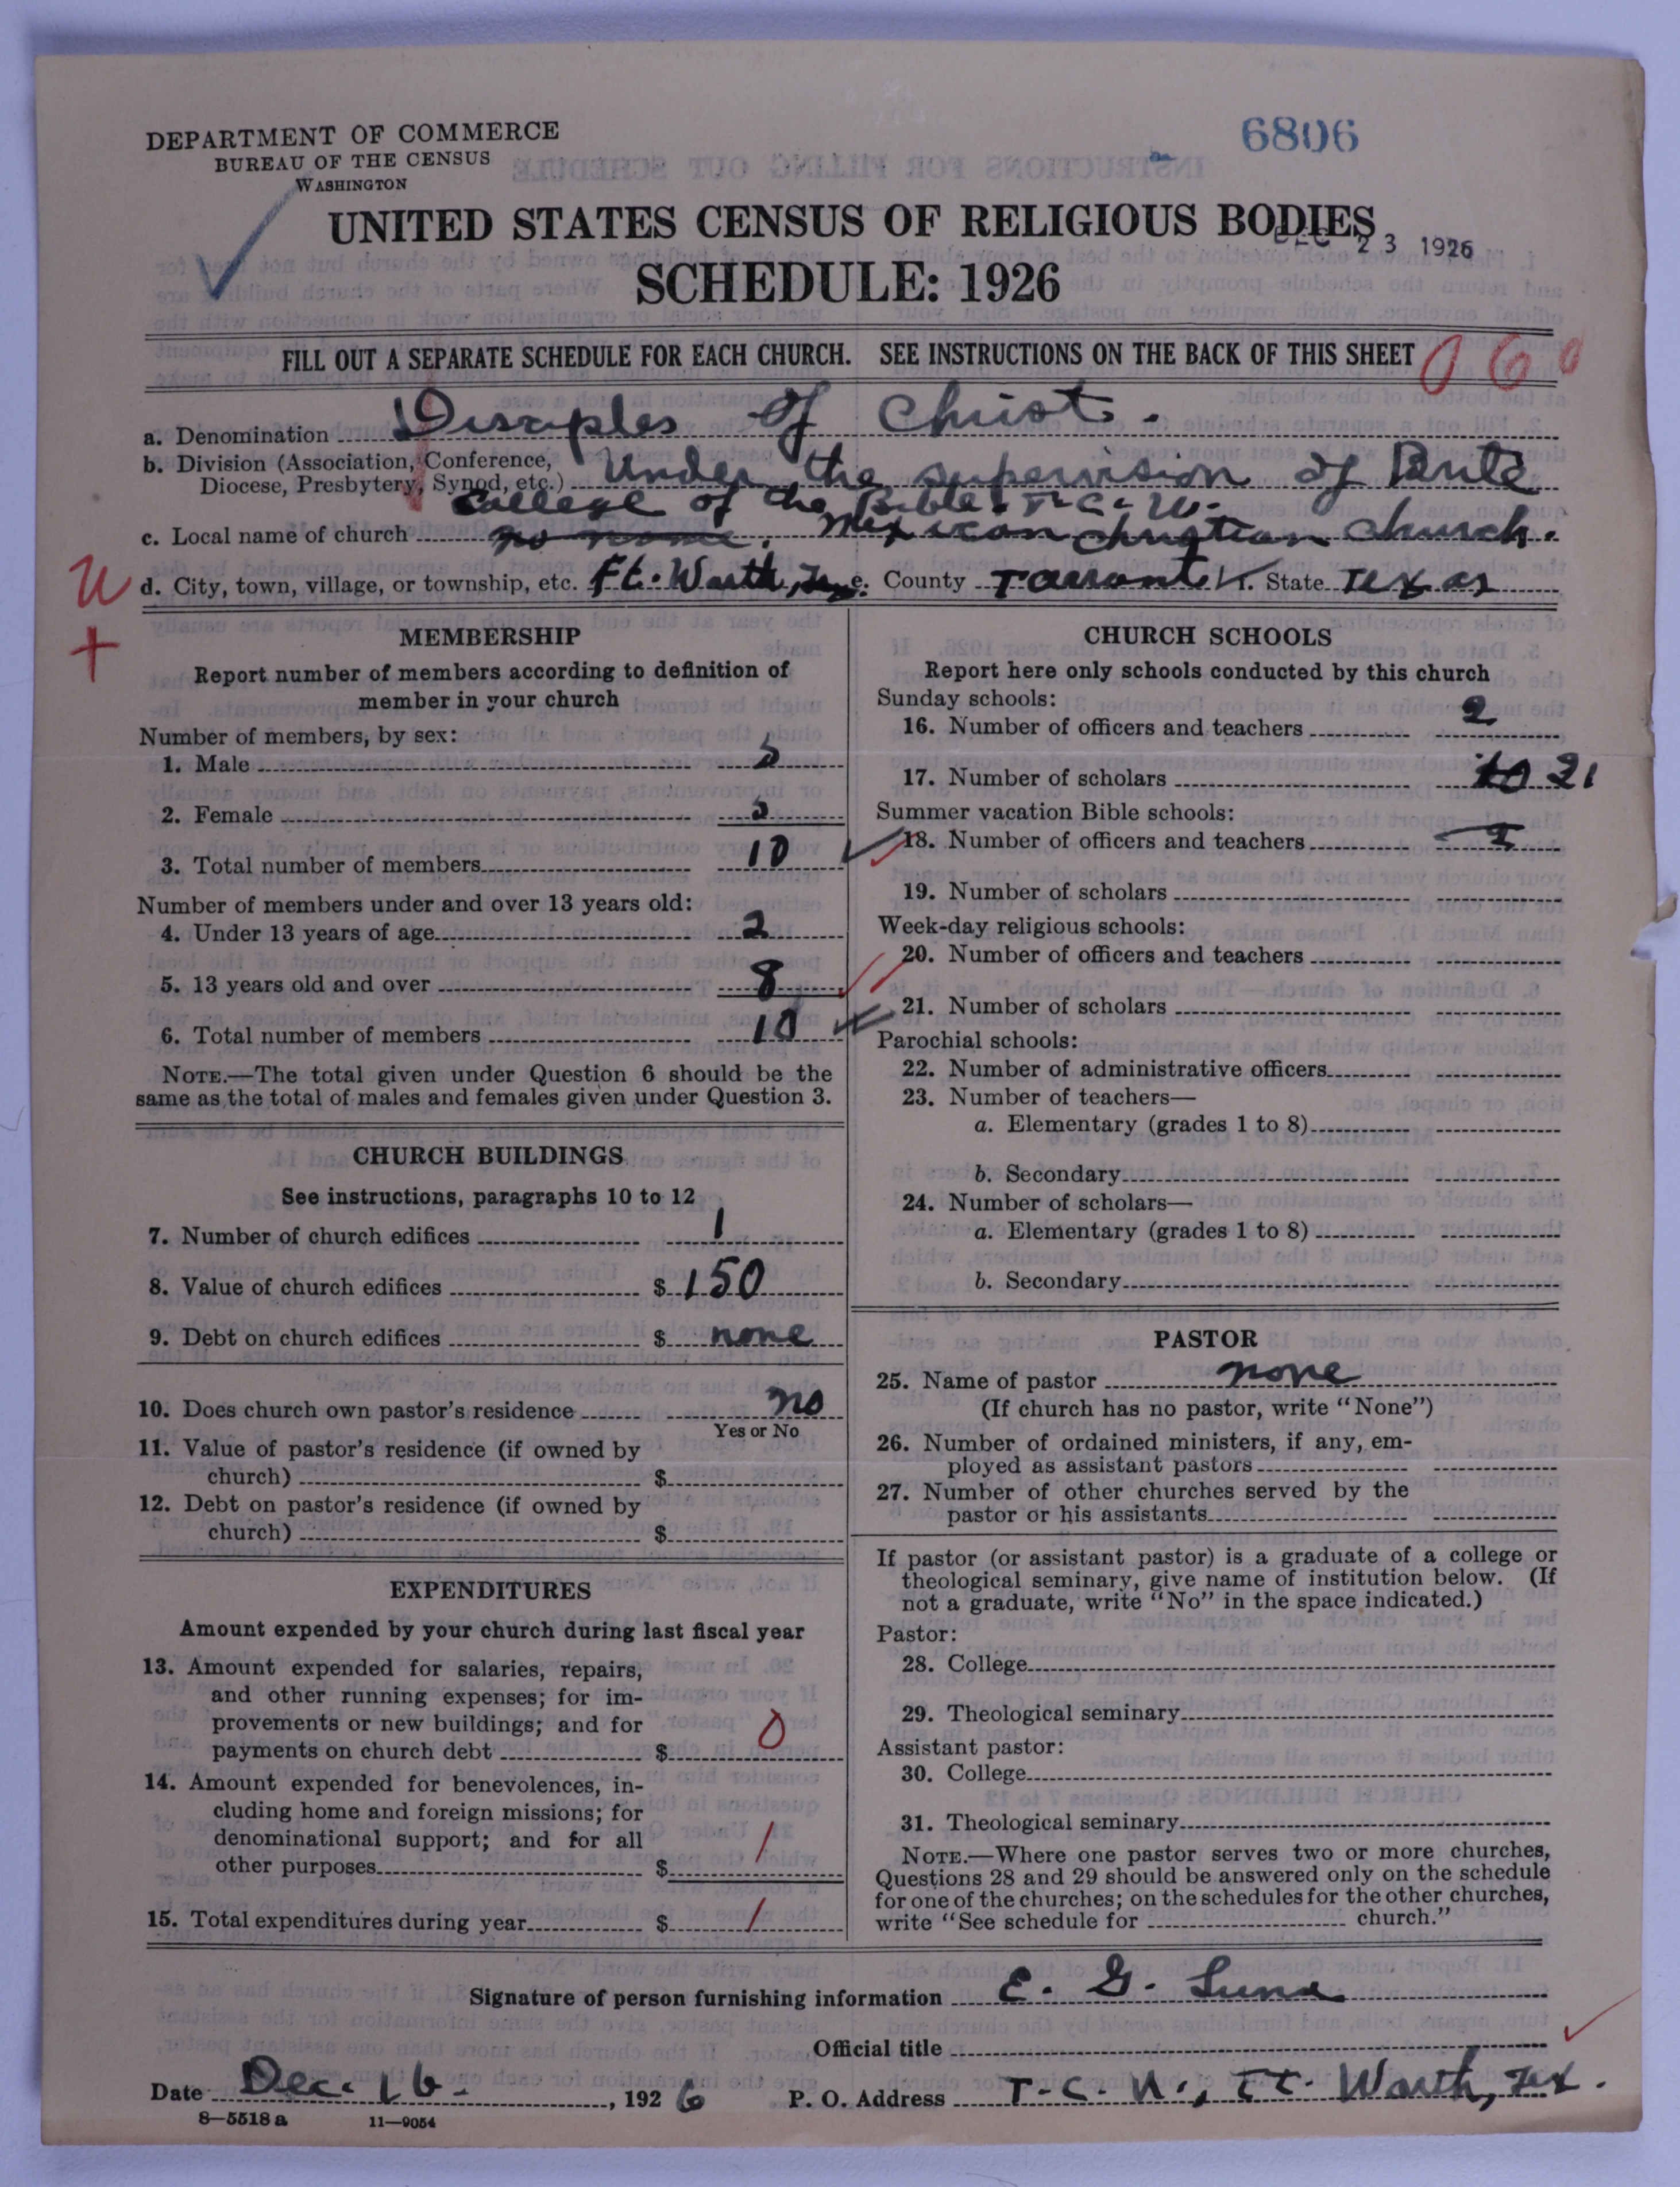 6806
DEPARTMENT OF COMMERCE
BUREAU OF THE CENSUS
WASHINGTON
UNITED STATES CENSUS OF RELIGIOUS BODIES
DEC 23 1926
SCHEDULE: 1926
FILL OUT A SEPARATE SCHEDULE FOR EACH CHURCH. SEE INSTRUCTIONS ON THE BACK OF THIS SHEET
060
a. Denomination Disciples of Christ.
b. Division (Association, Conference, Diocese, Presbytery, Synod, etc.) Under the supervision of Brite
College of the Bible. T-C-U-
c. Local name of church no name. Mexican Christian Church.
U
d. City, town, village, or township, etc. Ft. Worth, e. County Tarrant f. State Texas
+
MEMBERSHIP
Report number of members according to definition of
member in your church
Number of members, by sex:
1. Male 5
2. Female 5
3. Total number of members 10
Number of members under and over 13 years old:
4. Under 13 years of age 2
5. 13 years old and over 8
6. Total number of members 10
NOTE.—The total given under Question 6 should be the
same as the total of males and females given under Question 3.
CHURCH BUILDINGS
See instructions, paragraphs 10 to 12
7. Number of church edifices 1
8. Value of church edifices $ 150
9. Debt on church edifices $ none
10. Does church own pastor's residence no
Yes or No
11. Value of pastor's residence (if owned by
church) $
12. Debt on pastor's residence (if owned by
church) $
EXPENDITURES
Amount expended by your church during last fiscal year
13. Amount expended for salaries, repairs,
and other running expenses; for im-
provements or new buildings; and for
payments on church debt $ 0
14. Amount expended for benevolences, in-
cluding home and foreign missions; for
denominational support; and for all
other purposes $ /
15. Total expenditures during year $ /
CHURCH SCHOOLS
Report here only schools conducted by this church
Sunday schools:
16. Number of officers and teachers 2
17. Number of scholars 21
Summer vacation Bible schools:
18. Number of officers and teachers
19. Number of scholars
Week-day religious schools:
20. Number of officers and teachers
21. Number of scholars
Parochial schools:
22. Number of administrative officers
23. Number of teachers—
a. Elementary (grades 1 to 8)
b. Secondary
24. Number of scholars—
a. Elementary (grades 1 to 8)
b. Secondary
PASTOR
25. Name of pastor none
(If church has no pastor, write "None")
26. Number of ordained ministers, if any, em-
ployed as assistant pastors
27. Number of other churches served by the
pastor or his assistants
If pastor (or assistant pastor) is a graduate of a college or
theological seminary, give name of institution below. (If
not a graduate, write "No" in the space indicated.)
Pastor:
28. College
29. Theological seminary
Assistant pastor:
30. College
31. Theological seminary
NOTE.—Where one pastor serves two or more churches,
Questions 28 and 29 should be answered only on the schedule
for one of the churches; on the schedules for the other churches,
write "See schedule for church."
Signature of person furnishing information E. G. Luna
Official title
Date Dec. 16- , 1926 P. O. Address T-C-U-, Ft. Worth, Tex.
8—5518 a 11—9054